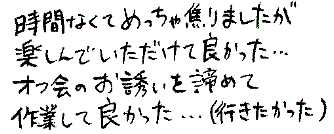 時間なくてめっちゃ焦りましたが
楽しんでいただけて良かった…
オフ会のお誘いを諦めて
作業して良かった…(行きたかった)